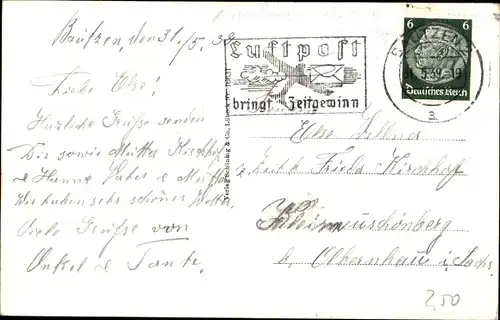 Bautzen, den 31./5. 39
Liebe Else!
Herzliche Grüße senden
Dir sowie Mutter Kirchhof
& Hanne Vater & Mutter
Wir haben sehr schönes
Viele Grüße von
Onkel & Tante.
Luftpost
bringt Zeitgewinn
BAUTZEN
39
a
6 6
Deutsches Reich
Verlag Schöning & Co., Lübeck
Else
z. Zeit b. Frieda Kirchhof
Kleinneuschönberg
b. Olbernhau i. Sachs.
2,50